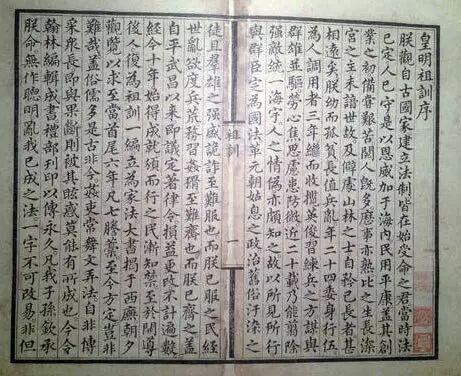 皇明祖訓序
朕觀自古國家建立法制皆在始受命之君當時法
已定人已守是以恩威加于海內民用平康蓋其創
業之初備嘗艱苦閱人既多歷事亦熟比之生長深
宮之主未諳世故及僻處山林之士自矜己長者甚
相遠矣朕幼而孤貧長值兵亂年二十四委身行伍
為人調用者三年繼而收攬英俊習練兵之方謀與
群雄並驅勞心焦思慮患防微近二十載乃能翦除
強敵統一海宇人之情偽亦頗知之故以所見所行
與群臣定為國法革元朝姑息之政治舊俗汙染之
祖訓
一
徒且羣雄之强盛詭詐至難服也而朕已服之民經
世亂欲度兵荒務習姦猾至難齊也而朕已齊之蓋
自平武昌以來即議定著律令損益更改不計遍數
經今十年始得成就頒而行之民漸知禁至於開導
後人復為祖訓一編立為家法大書揭于西廡朝夕
觀覽以求至當首尾六年凡七謄藁至今方定豈非
難哉蓋俗儒多是古非今姦吏常舞文弄法自非博
采衆長即與果斷則被其眩惑莫能有所成也今令
翰林編輯成書禮部刊印以傳永久凡我子孫欽承
朕命無作聰明亂我已成之法一字不可改易非但